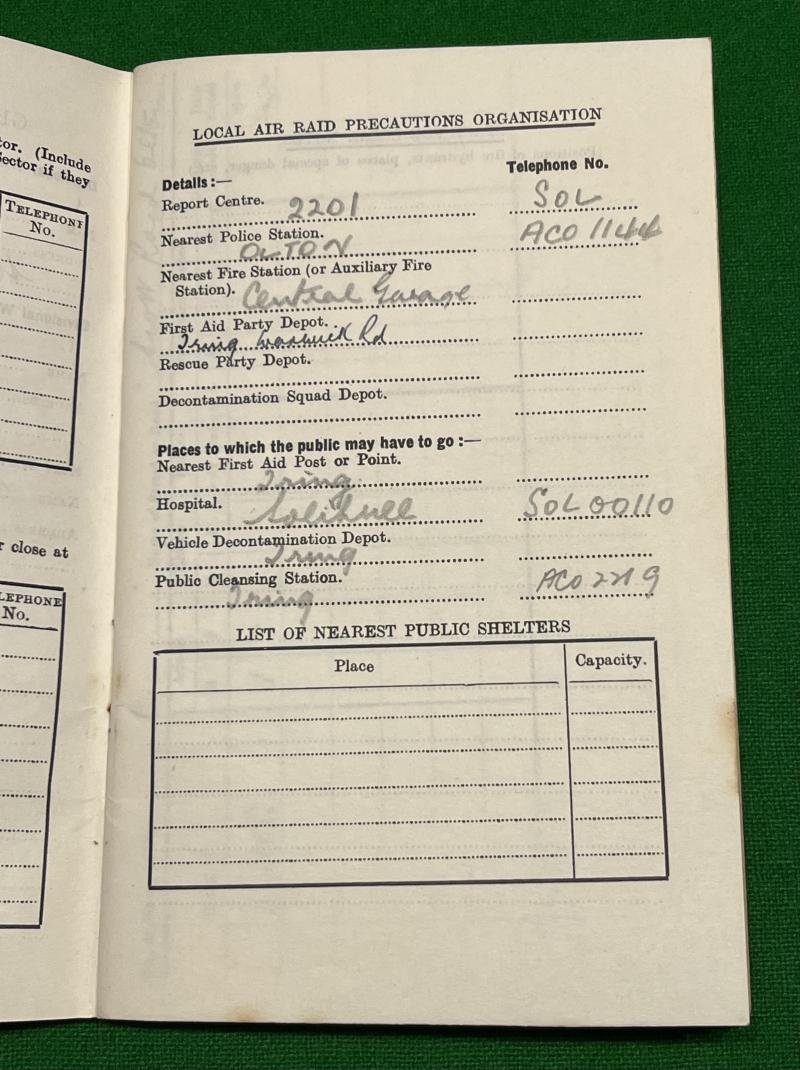 tor. (Include
Sector if they
TELEPHONE
No.
r close at
LEPHONE
No.
LOCAL AIR RAID PRECAUTIONS ORGANISATION
Details:— Telephone No.
Report Centre. 2201 SOL
Nearest Police Station. OLTON ACO 1144
Nearest Fire Station (or Auxiliary Fire
Station). Central Garage
First Aid Party Depot.
Warwick Rd
Rescue Party Depot.
Decontamination Squad Depot.
Places to which the public may have to go:—
Nearest First Aid Post or Point.
Hospital. Solihull SOL 00110
Vehicle Decontamination Depot.
Public Cleansing Station. ACO
LIST OF NEAREST PUBLIC SHELTERS
Place Capacity.